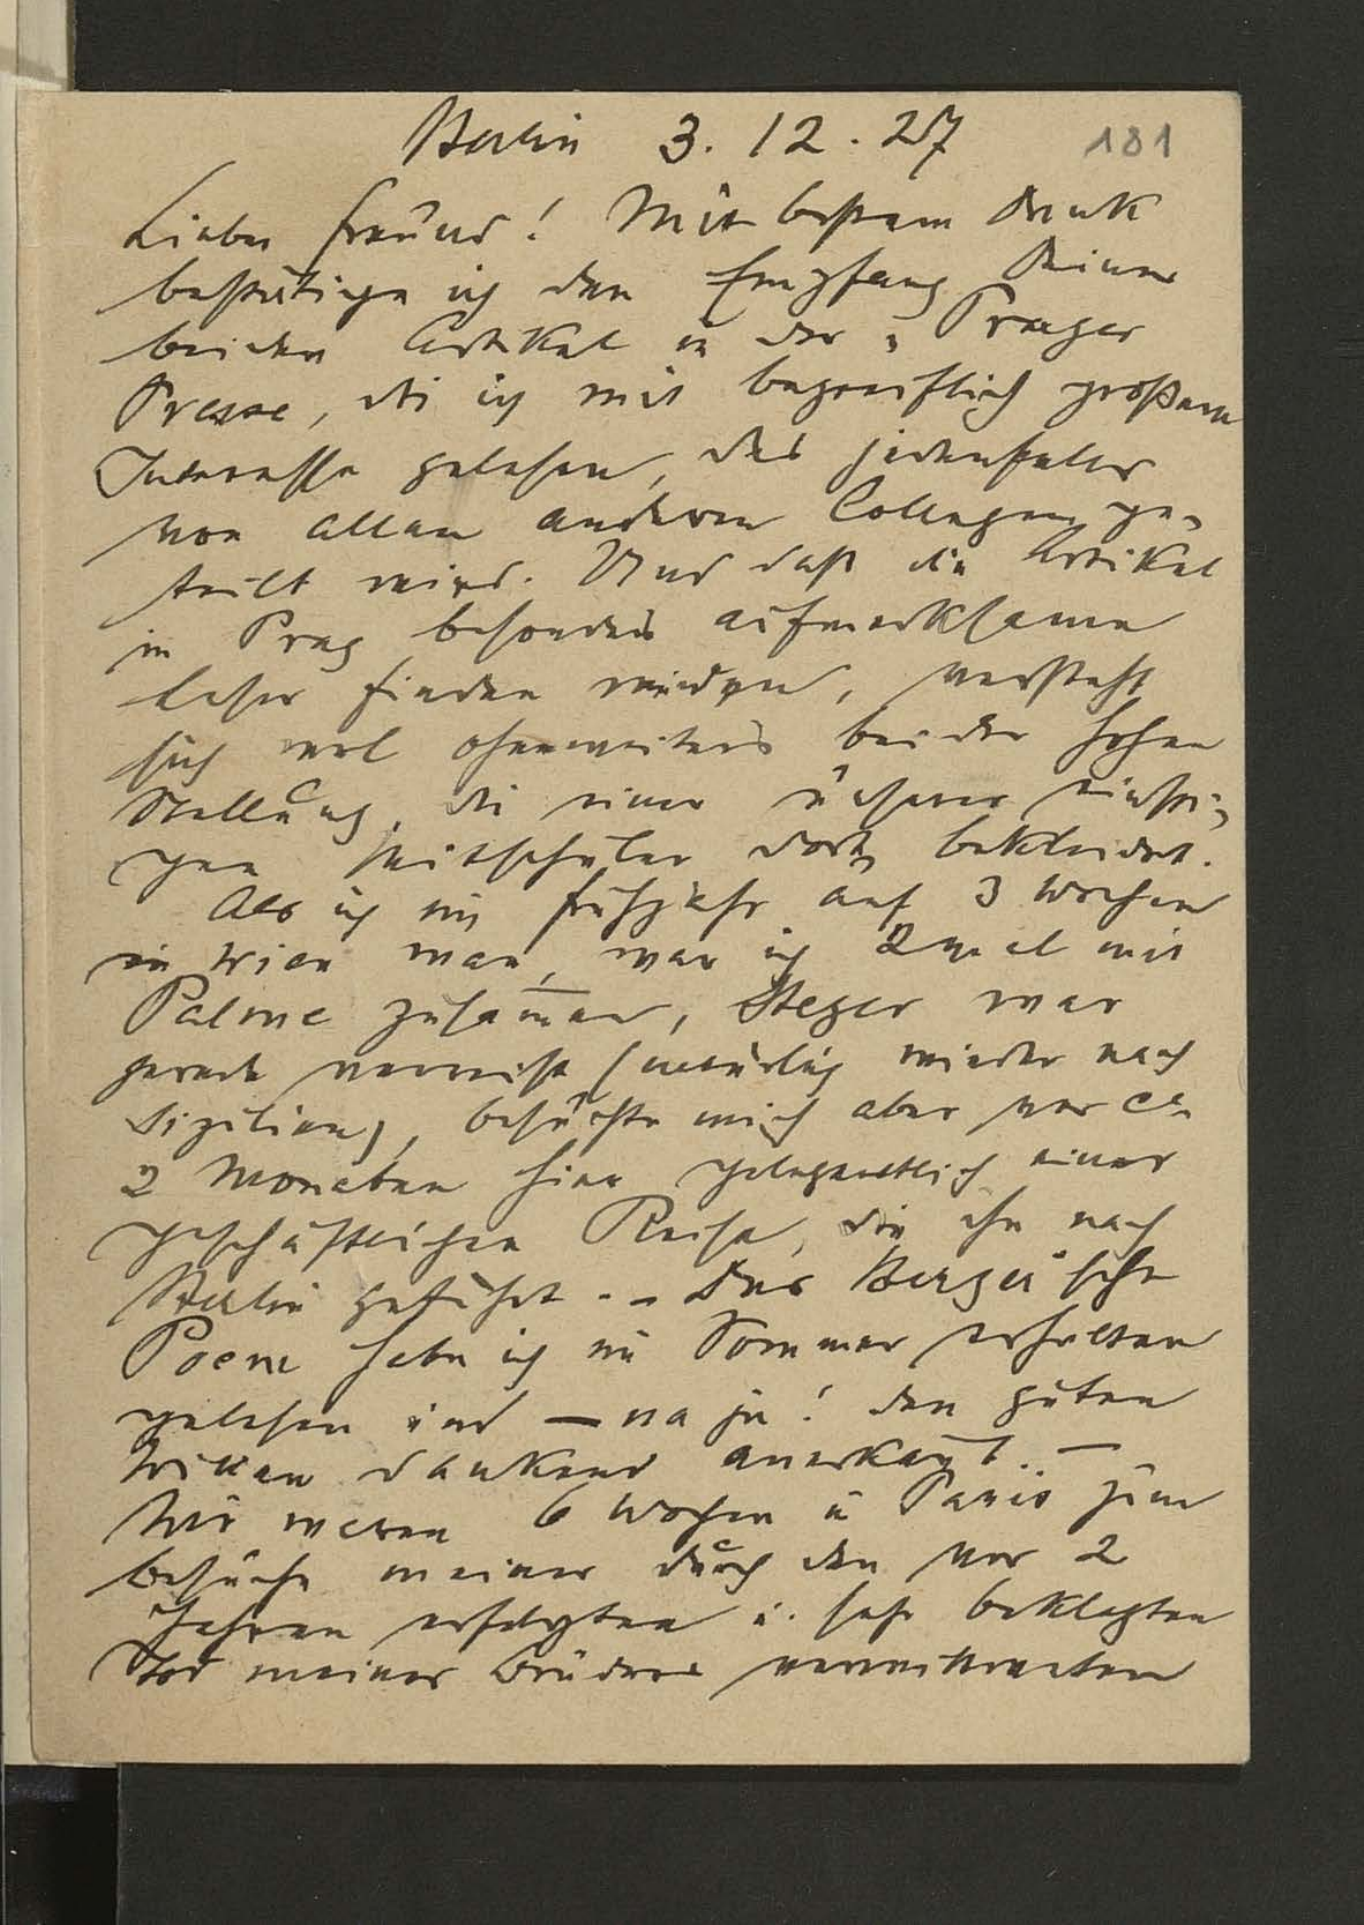 Berlin 3. 12. 27
181
Lieber Freund! Mit bestem Dank
bestätige ich den Empfang Deiner
beiden Artikel in der „Prager
Presse, die ich mit begreiflich großem
Interesse gelesen, das jedenfalls
von allen anderen Collegen ge-
teilt wird. Und daß die Artikel
in Prag besonders aufmerksame
Leser finden würden, versteht
sich wol ohneweiters bei der hohen
Stellung, die einer unserer einsti-
gen Mitschüler dort bekleidet.
Als ich im Frühjahr auf 3 Wochen
in Wien war, war ich 2mal mit
Palme zusam̅en, Steger war
gerade verreist (natürlich wieder nach
Sizilien), besuchte mich aber vor ca.
2 Monaten hier gelegentlich einer
geschäftlichen Reise, die ihn nach
Berlin geführt. – Das Berger'sche
Poem habe ich im Sommer erhalten
gelesen und – na ja! den guten
Willen dankend anerkan̅t. –
Wir waren 6 Wochen in Paris zum
Besuche meiner durch den vor 2
Jahren erfolgten u. sehr beklagten
Tod meines Bruders vereinsamten